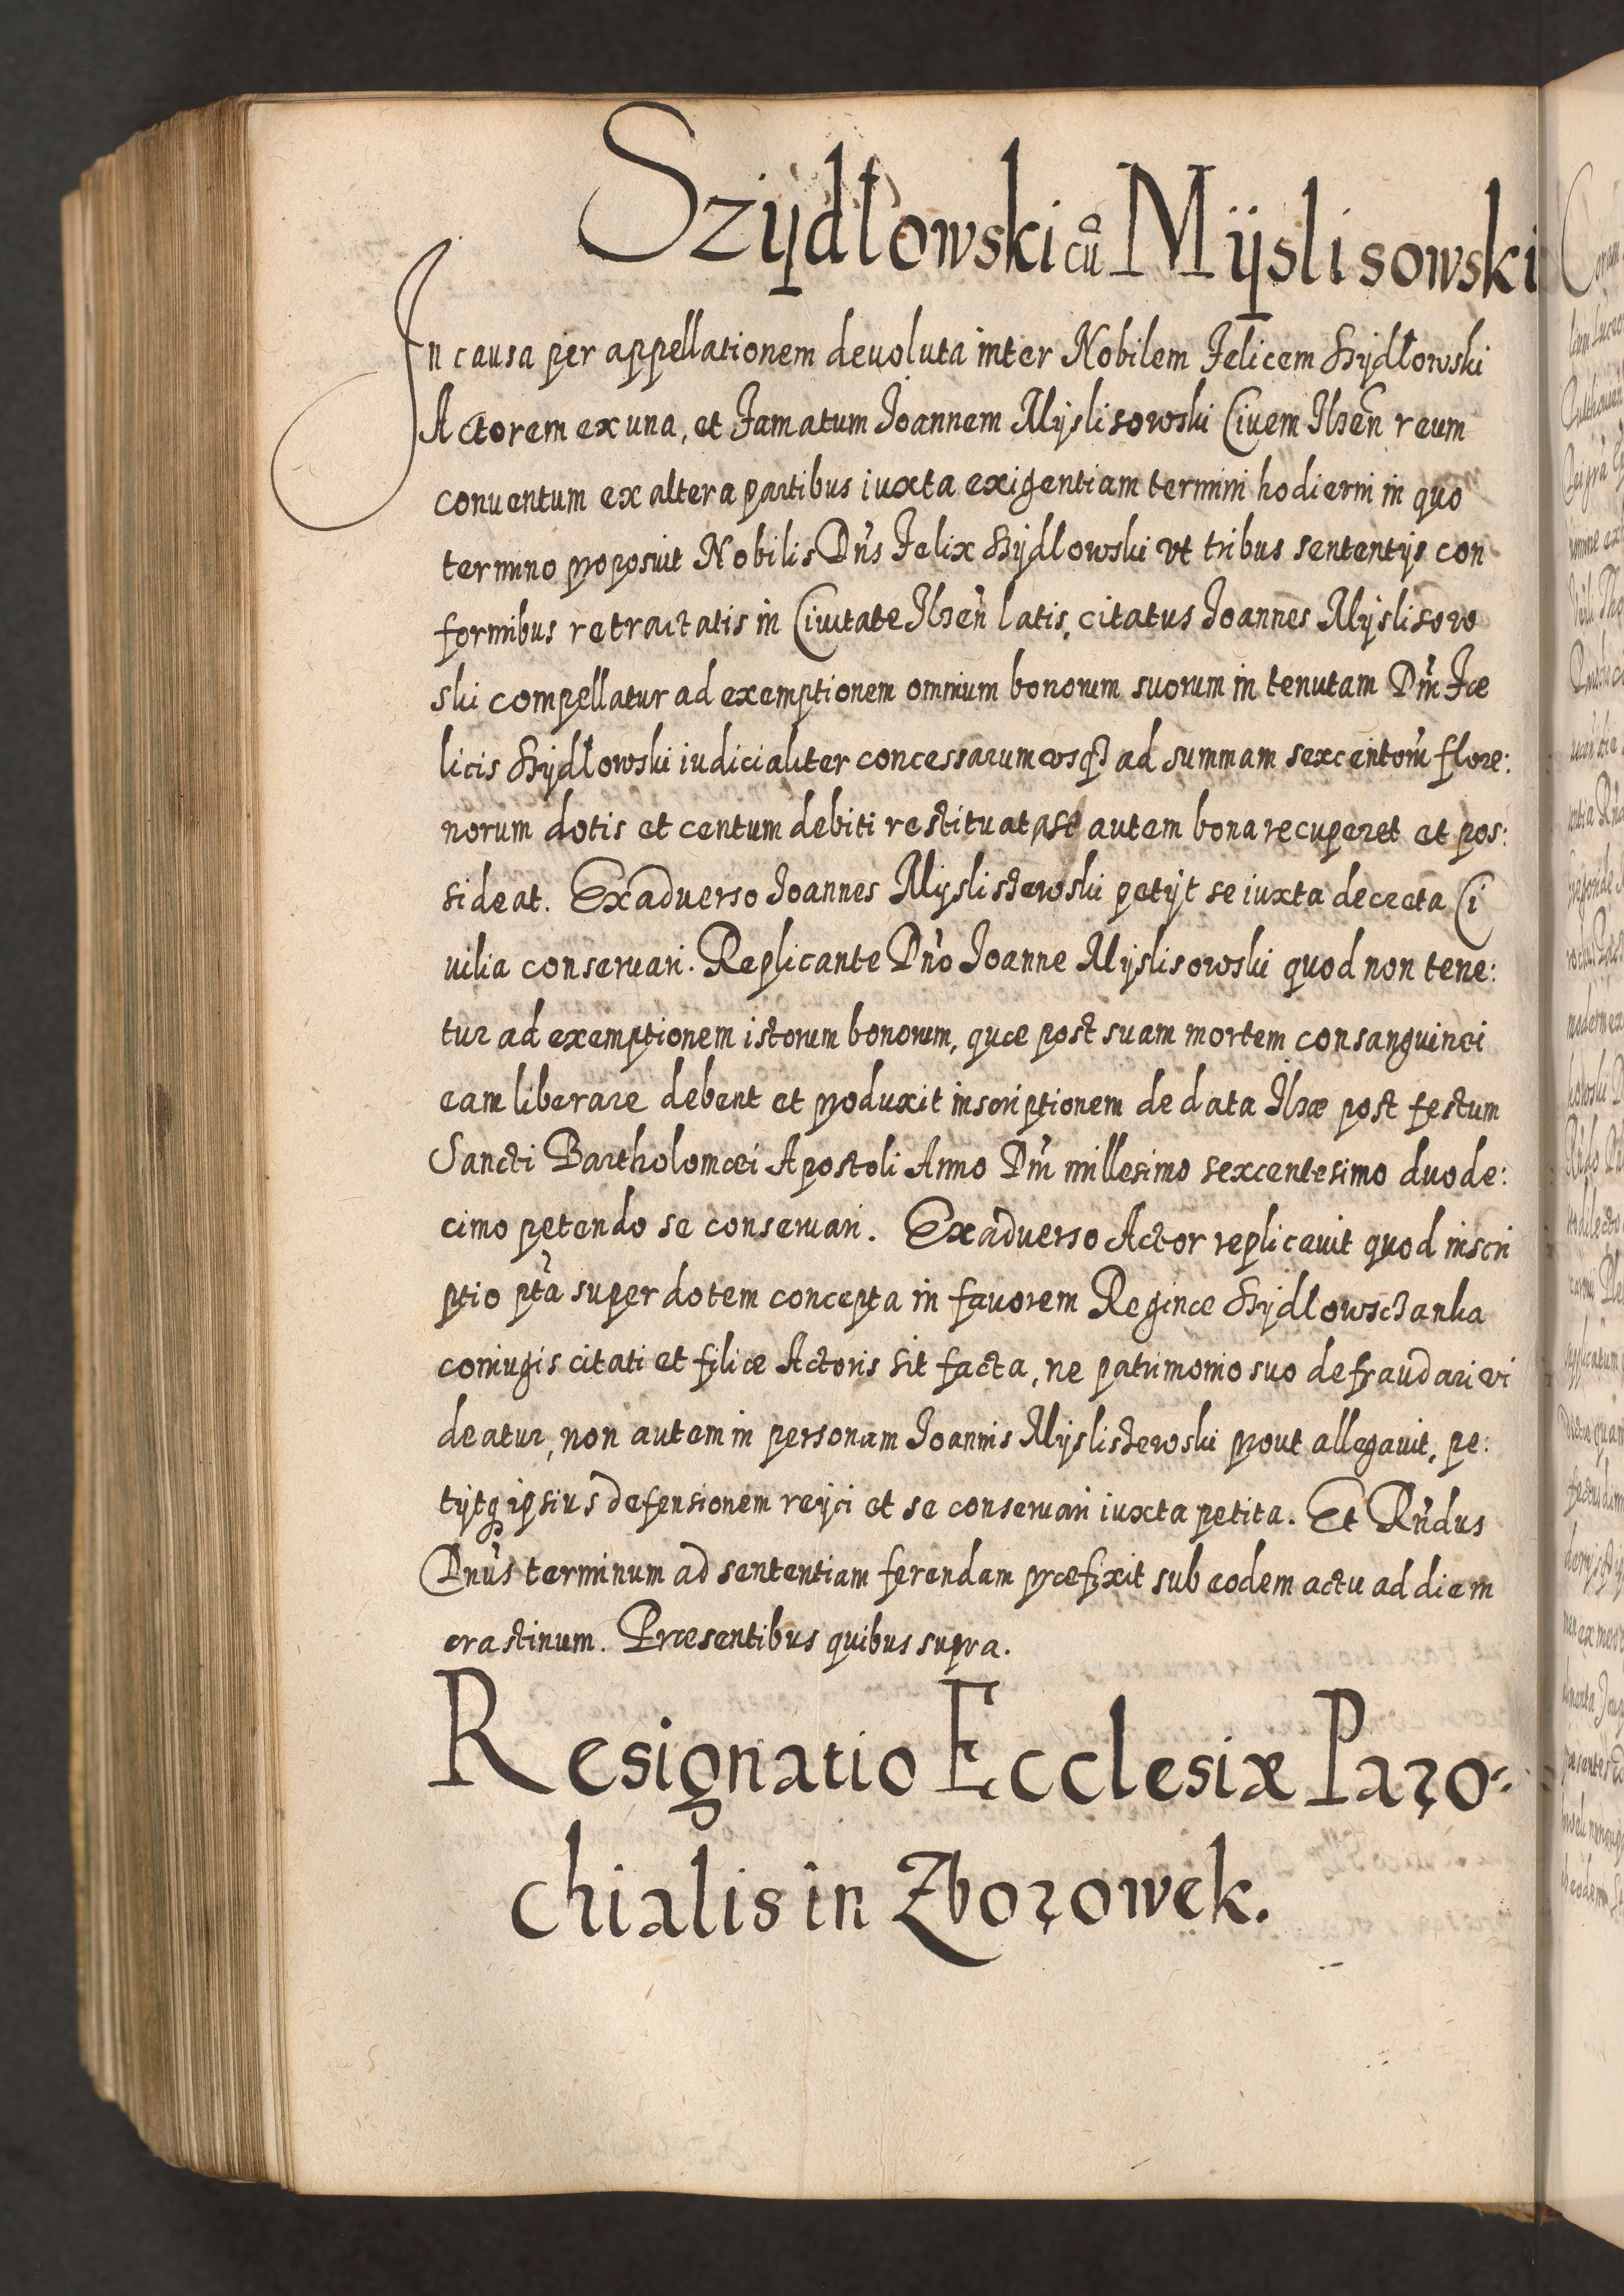 Szÿdłowski cũ Mÿslisowski
In causa per appellationem deuoluta inter Nobilem Felicem Szÿdłowski
Actorem ex una, et Famatum Joannem Mÿslisowski Ciuem Ilzen̄ reum
conuentum ex altera partibus iuxta exigentiam termini hodierni in quo
termino proposuit Nobilis Dn̄s Felix Szÿdlowski vt tribus sententÿs con
formibus retractatis in Ciuitate Ilzen̄ latis, citatus Joannes Mÿslisow
ski compellatur ad exemptionem omnium bonorum suorum in tenutam Dn̄i Fæ
licis Szÿdłowski iudicialiter concessarum vsqꝫ ad summam sexcentorū flore:
norum dotis et centum debiti restituat autem bona recuperet et pos:
sideat. Ex aduerso Joannes Mÿslisżewski petÿt se iuxta decreta Ci
uilia conseruari. Replicante Dn̄o Joanne Mÿslisowski quod non tene:
tur ad exemptionem istorum bonorum, quæ post suam mortem consanguinei
eam liberare debent et produxit inscriptionem de data Ilzæ post festum
Sancti Bartholomæi Apostoli Anno Dn̄i millesimo sexcentesimo duode:
cimo petendo se conseruari. Ex aduerso Actor replicauit quod inscri
ptio pt̄a super dotem concepta in fauorem Reginæ Szÿdłowscżanka
coniugis citati et filiæ Actoris sit facta, ne patrimonio suo defraudari vi
deatur, non autem in personam Joannis Mÿslisżewski prout allegauit, pe:
tÿtqꝫ ipsius defensionem reÿci et se conseruari iuxta petita. Et Rn̄dus
Dn̄us terminum ad sententiam ferendam præfixit sub eodem actu ad diem
crastinum. Præsentibus quibus supra.
Resignatio Ecclesiæ Paro-
chialis in Zborowek.